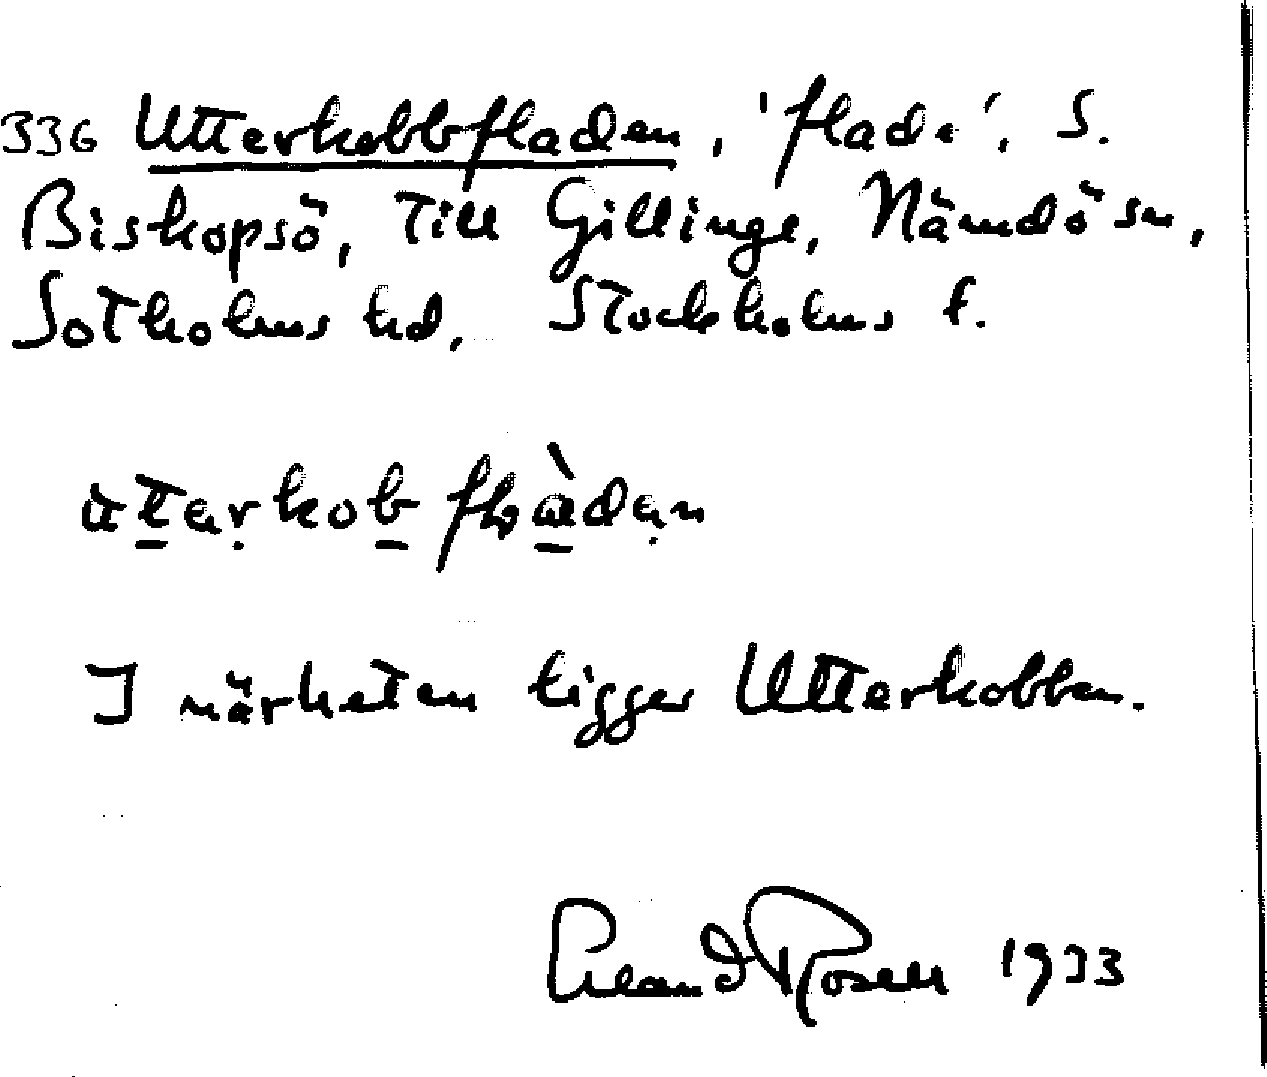 336 Utterkobbfladen, 'flade', S.
Biskopsö, till Gillinge, Nämdö sn,
Sotholms hd, Stockholms l.
I närheten ligger Utterkobben.
Erland Rosell 1933